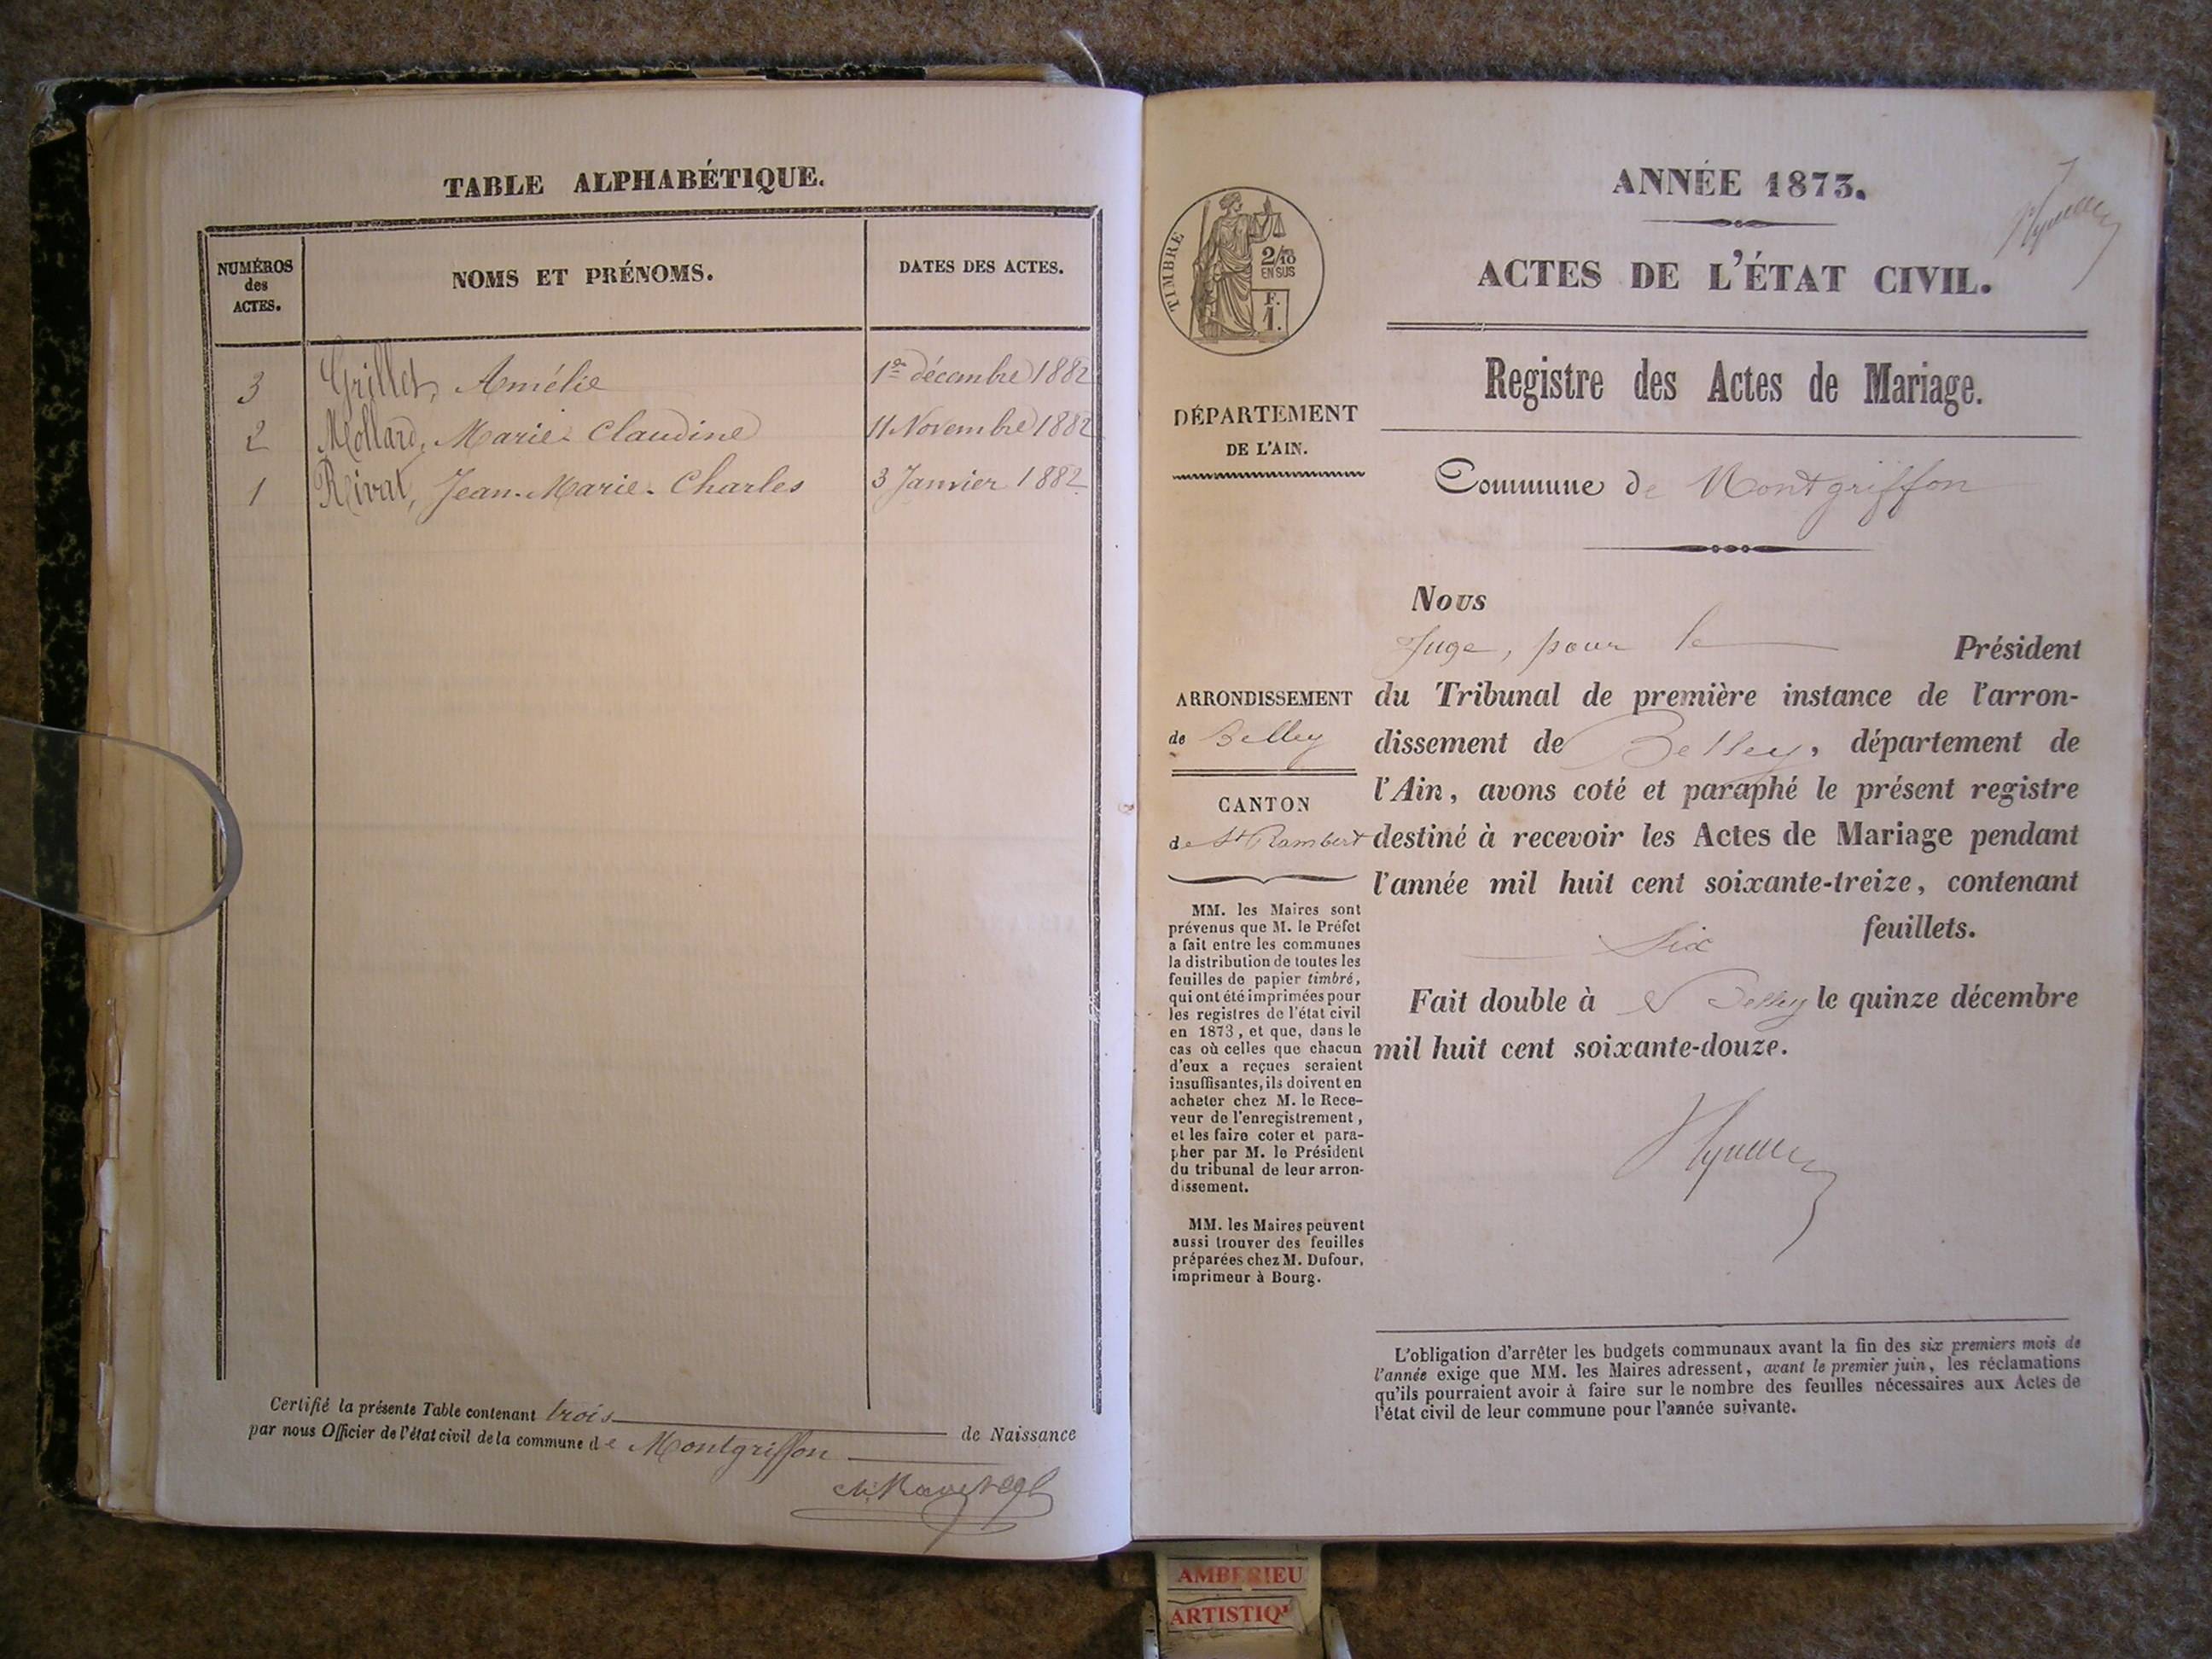 TABLE ALPHABÉTIQUE.
NUMÉROS
des
ACTES.
NOMS ET PRÉNOMS.
DATES DES ACTES.
3 Grillet, Amélie 1er décembre 1882
2 Mollard, Marie-Claudine 11 Novembre 1882
1 Rivat, Jean-Marie-Charles 3 Janvier 1882
Certifié la présente Table contenant trois de Naissance
par nous Officier de l'état civil de la commune de Montgriffon
TIMBRE
2/10
EN SUS
F.
1.
DÉPARTEMENT
DE L'AIN.
ARRONDISSEMENT
de Belley
CANTON
de St Rambert
MM. les Maires sont
prévenus que M. le Préfet
a fait entre les communes
la distribution de toutes les
feuilles de papier timbré,
qui ont été imprimées pour
les registres de l'état civil
en 1873, et que, dans le
cas où celles que chacun
d'eux a reçues seraient
insuffisantes, ils doivent en
acheter chez M. le Rece-
veur de l'enregistrement,
et les faire coter et para-
pher par M. le Président
du tribunal de leur arron-
dissement.
MM. les Maires peuvent
aussi trouver des feuilles
préparées chez M. Dufour,
imprimeur à Bourg.
ANNÉE 1873.
ACTES DE L'ÉTAT CIVIL.
Registre des Actes de Mariage.
Commune de Montgriffon
Nous
Juge, pour le Président
du Tribunal de première instance de l'arron-
dissement de Belley, département de
l'Ain, avons coté et paraphé le présent registre
destiné à recevoir les Actes de Mariage pendant
l'année mil huit cent soixante-treize, contenant
Six feuillets.
Fait double à Belley le quinze décembre
mil huit cent soixante-douze.
L'obligation d'arrêter les budgets communaux avant la fin des six premiers mois de
l'année exige que MM. les Maires adressent, avant le premier juin, les réclamations
qu'ils pourraient avoir à faire sur le nombre des feuilles nécessaires aux Actes de
l'état civil de leur commune pour l'année suivante.
AMBERIEU
ARTISTIQU